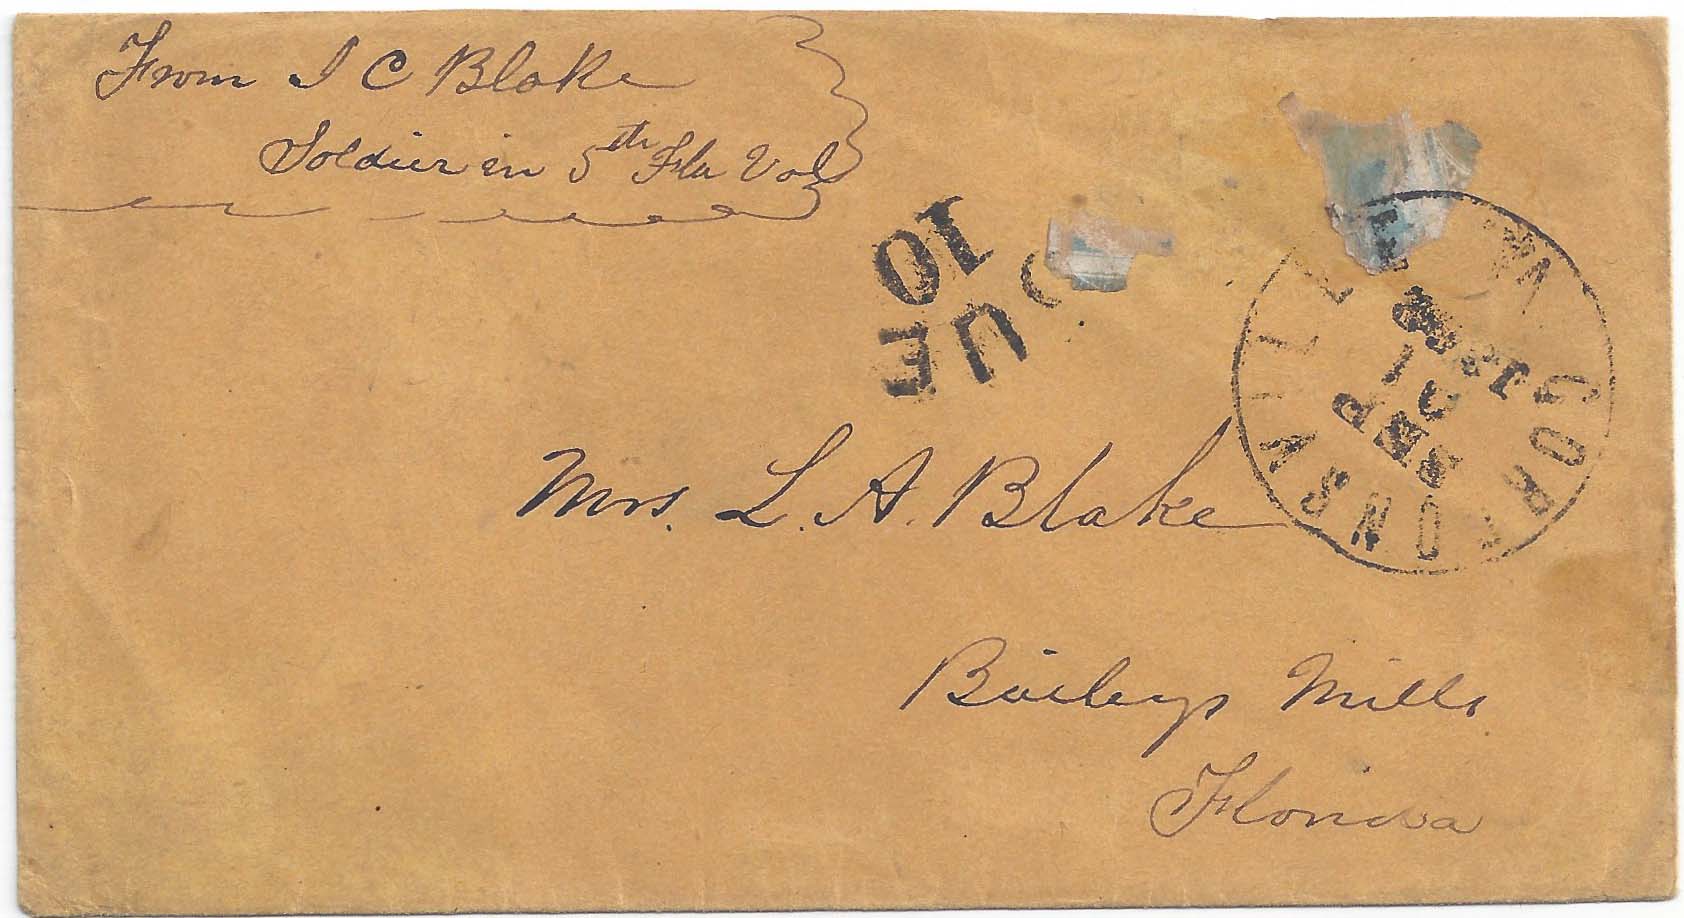 From I C Blake
Soldier in 5th Fla Vols
DUE
10
GORDONSVILLE VA.
SEP
1863
Mrs. L. A. Blake
Baileys Mills
Florida